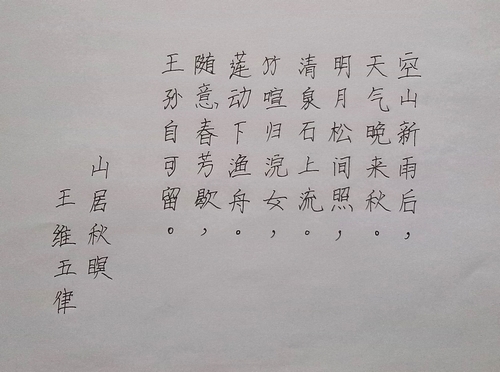 空山新雨后，
天气晚来秋。
明月松间照，
清泉石上流。
竹喧归浣女，
莲动下渔舟。
随意春芳歇，
王孙自可留。
山居秋暝
王维五律